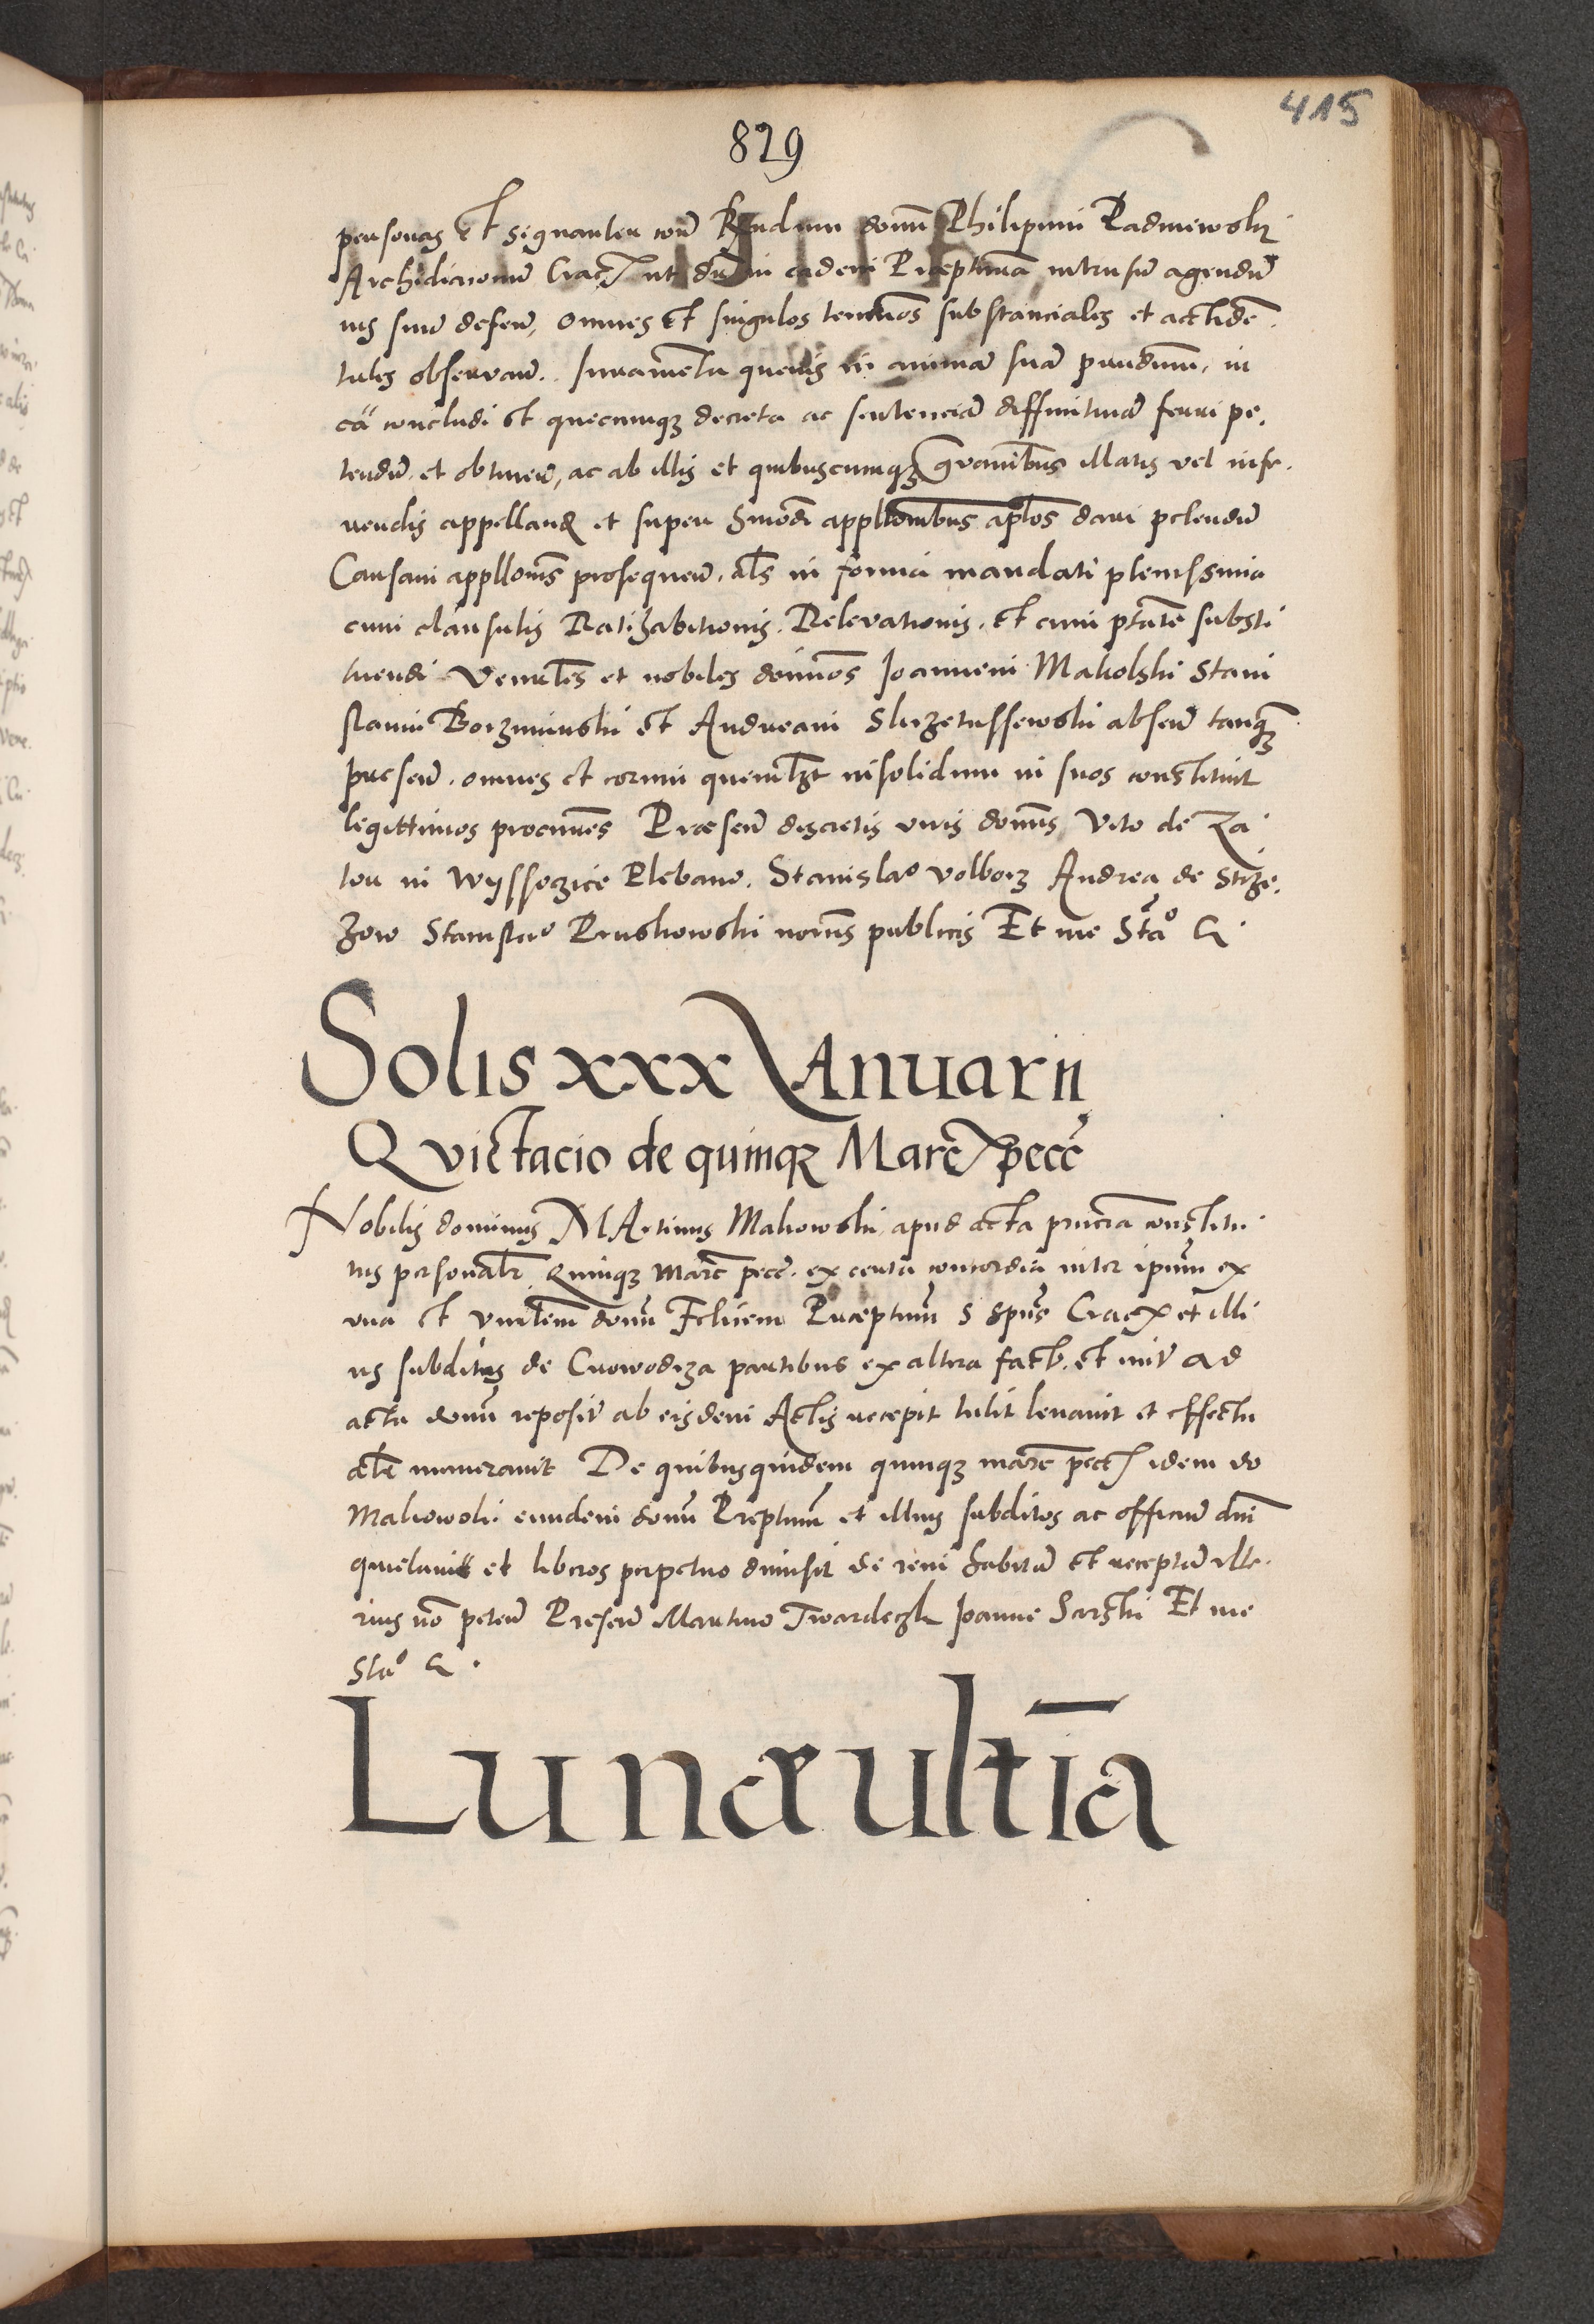 415
829
personas Et signanter con̄ Rn̄dum domn̄ Philipum Padniewsky
Archidiaconum Crac̄ ut dr̄ in eadem Præpturā intrusum agendū
ius suum defen̄, omnes Et singulos terminos substanciales et acciden̄
tales observan̄. Iuramenta quevis in animā suā prestandum, in
cā concludi Et quecumqʒ decreta ac sentenciā diffinitivā ferri pe
tendū, et obtinen̄, ac ab illis et quibuscumqʒ gravaminibus illatis vel infe
rendis appelland et super huiusmodi appellōnibus aplōs dari petendū
Causam appllonis prosequen̄, als in forma mandati plenissima
cum clausulis Ratihabitionis, Relevationis, Et cum ptāte substi
tuendi Venerles et nobiles dominos Joannem Makolski Stani
slaum Borzminski Et Andream Skrzetussewski absen̄ tanqʒ
præsen̄, omnes et eorum quemlꝫt insolidum in suos constituit
legittimos procuratores Præsen̄ discretis viris dominis Vito de Za
tor in Wyssoczice Plebano, Stanislao Volborz Andrea de Strze
zow Stanislao Pruskowski notariis publicis Et me Stāo &
Solis xxx Ianuarii
Qvictacio de quinqʒ Marc̄ pecc̄
Nobilis dominus MArtinus Makowski, apud acta præsencia constitu
tus personalr̄ Quinqʒ marc̄ pecc̄, ex certa concordia inter ipsum ex
una Et Venerlem domn̄ Felicem Præpturm̄ S Spūs Crac̄ et illi
us subditos de Crowodrza partibus ex altera fact̄, Et inir̄ ad
acta domn̄ reposit̄ ab eisdem Actis recepit tulit levavit et effectu
alr̄ numeravit De quibusquidem quinqʒ marc̄ pecc̄ idem do
Makowski eundem domn̄ Preptum̄ et illius subditos ac officium dni
quietavit et liberos perpetuo dimisit de rem̄ habitā Et receptā ulte
rius nō peten̄ Presen̄ Martino Twardeczki Joanne Sarski Et me
Stāo &.
Lunæ ultīa